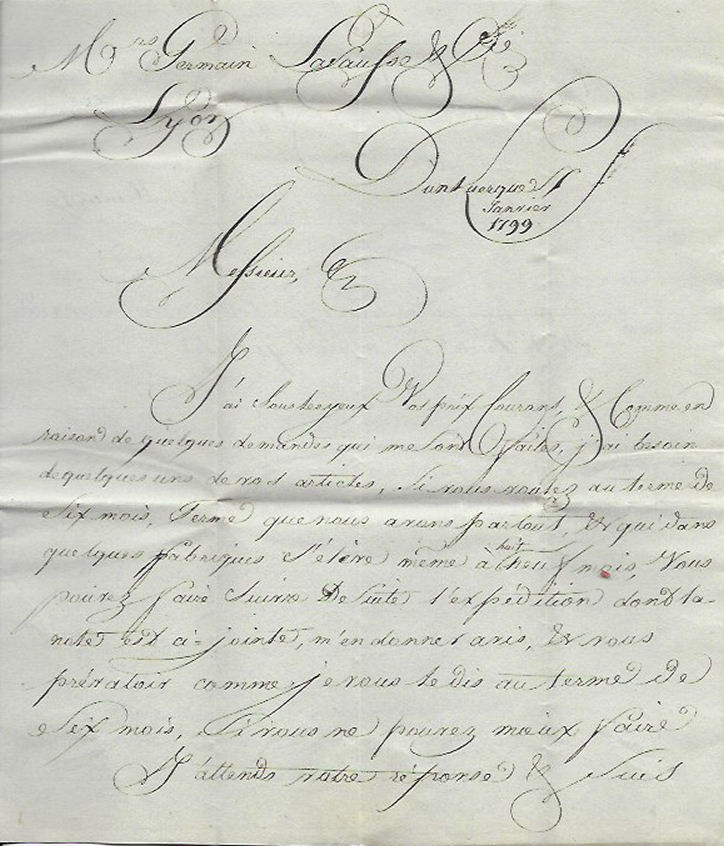 Mrs Germain Lasausse & Cie
Lyon
Dunkuerque
Janvier
1799
Messieurs,
J'ai sous les yeux Vos prix Courans, & Comme en
raison de quelques demandes qui me sont faites, j'ai besoin
de quelques uns de vos articles, Si vous voulez au terme de
Six mois, terme que nous avons partout, & qui dans
quelques fabriques S'élève même à huit
neuf mois, Vous
pouvez faire Suivre De Suite l'expédition dont la
note est ci-jointe, m'en donner avis, & vous
prévaloir comme je vous le dis au terme de
Six mois, Si vous ne pouvez mieux faire
J'attends votre réponse & Suis